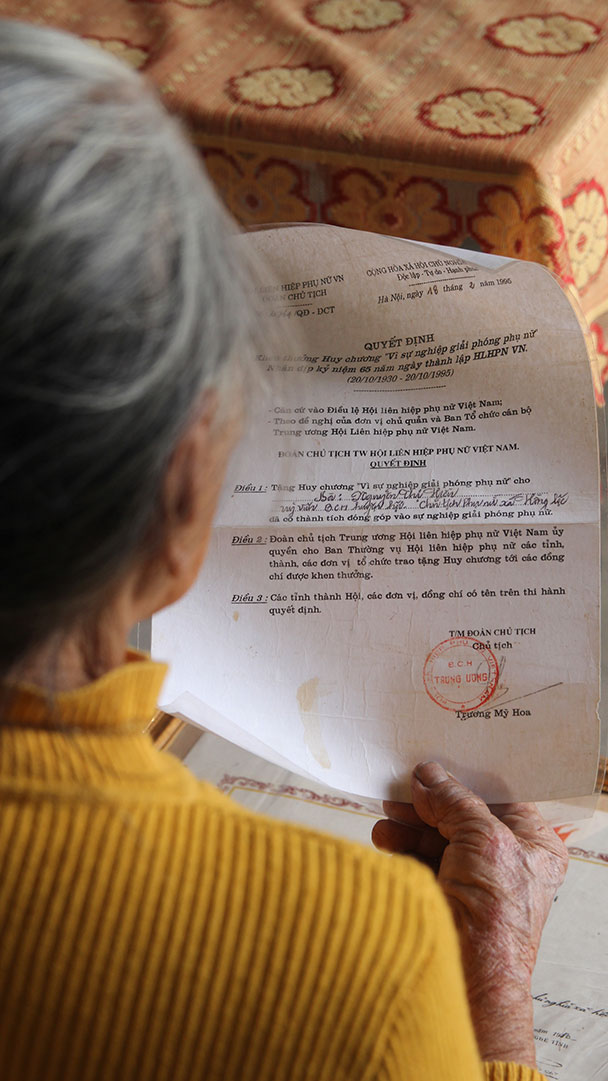 LIÊN HIỆP PHỤ NỮ VN
ĐOÀN CHỦ TỊCH
QĐ - ĐCT
CỘNG HÒA XÃ HỘI CHỦ NGHĨA
Độc lập - Tự do - Hạnh phúc
Hà Nội, ngày 18 tháng 2 năm 1996
QUYẾT ĐỊNH
Khen thưởng Huy chương "Vì sự nghiệp giải phóng phụ nữ"
Nhân dịp kỷ niệm 65 năm ngày thành lập HLHPN VN.
(20/10/1930 - 20/10/1995)
- Căn cứ vào Điều lệ Hội liên hiệp phụ nữ Việt Nam;
- Theo đề nghị của đơn vị chủ quản và Ban Tổ chức cán bộ
Trung ương Hội Liên hiệp phụ nữ Việt Nam.
ĐOÀN CHỦ TỊCH TW HỘI LIÊN HIỆP PHỤ NỮ VIỆT NAM.
QUYẾT ĐỊNH
Điều 1 : Tặng Huy chương "Vì sự nghiệp giải phóng phụ nữ" cho
Bà: Nguyễn Thị
uỷ viên BCH huyện hội Chủ tịch Phụ nữ xã Hồng Lộc
đã có thành tích đóng góp vào sự nghiệp giải phóng phụ nữ.
Điều 2 : Đoàn chủ tịch Trung ương Hội liên hiệp phụ nữ Việt Nam ủy
quyền cho Ban Thường vụ Hội liên hiệp phụ nữ các tỉnh,
thành, các đơn vị tổ chức trao tặng Huy chương tới các đồng
chí được khen thưởng.
Điều 3 : Các tỉnh thành Hội, các đơn vị, đồng chí có tên trên thi hành
quyết định.
T/M ĐOÀN CHỦ TỊCH
Chủ tịch
B.C.H
TRUNG ƯƠNG
Trương Mỹ Hoa